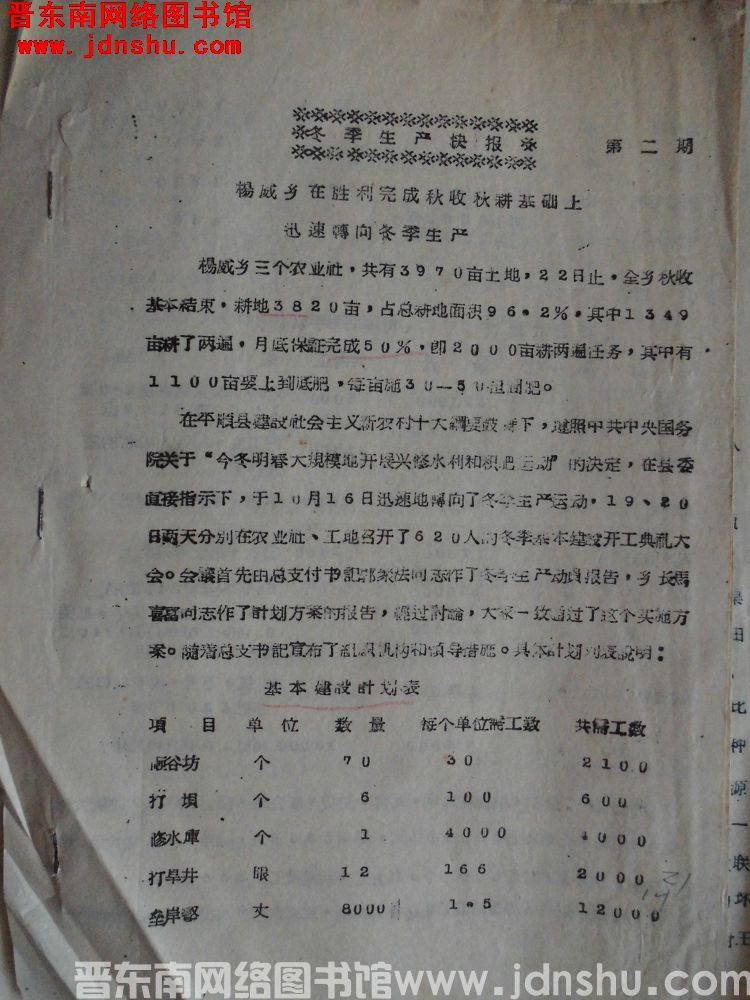 晋东南网络图书馆
www.jdnshu.com
冬季生产快报
第二期
楊威乡在胜利完成秋收秋耕基础上
迅速轉向冬季生产
楊威乡三个农业社，共有3970亩土地，22日止，全乡秋收
基本結束，耕地3820亩，占总耕地面积96.2%，其中1349
亩耕了两遍，月底保証完成50%，即2000亩耕两遍任务，其中有
1100亩要上到底肥，每亩施30—50担圈肥。
在平順县建設社会主义新农村十大綱要鼓舞下，遵照中共中央国务
院关于“今冬明春大規模地开展兴修水利和积肥运动”的决定，在县委
直接指示下，于10月16日迅速地轉向了冬季生产运动，19、20
日两天分别在农业社、工地召开了620人的冬季基本建設开工典礼大
会。会議首先由总支付书記郭 法同志作了冬季生产动員报告，乡长馬
喜富同志作了計划方案的报告，經过討論，大家一致通过了这个实施方
案。随着总支书記宣布了組織机构和領导措施。具体計划列表說明：
基本建設計划表
項目 单位 数量 每个单位需工数 共需工数
谷坊 个 70 30 2100
打埧 个 6 100 600
修水庫 个 1 4000 4000
打旱井 眼 12 166 2000
垒岸 丈 8000 1.5 12000
21
田
比
种
源
一
联
坏
王
晋东南网络图书馆www.jdnshu.com